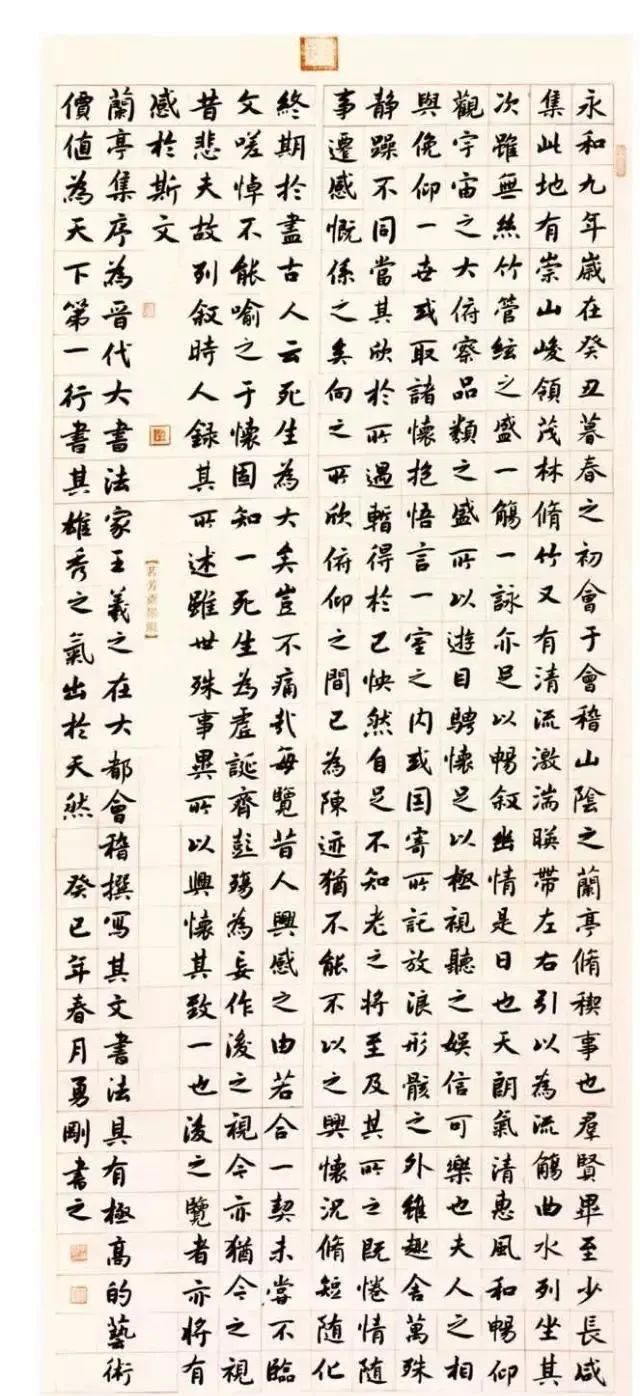 永和九年歲在癸丑暮春之初會于會稽山陰之蘭亭脩稧事也羣賢畢至少長咸
集此地有崇山峻領茂林脩竹又有清流激湍暎帶左右引以為流觴曲水列坐其
次雖無絲竹管絃之盛一觴一詠亦足以暢叙幽情是日也天朗氣清惠風和暢仰
觀宇宙之大俯察品類之盛所以遊目騁懷足以極視聽之娛信可樂也夫人之相
與俛仰一世或取諸懷抱悟言一室之內或因寄所記放浪形骸之外雖趣舍萬殊
靜躁不同當其欣於所遇暫得於己怏然自足不知老之將至及其所之既惓情隨
事遷感慨係之矣向之所欣俯仰之間已為陳迹猶不能不以之興懷況脩短隨化
終期於盡古人云死生為大矣豈不痛哉每覽昔人興感之由若合一契未嘗不臨
文嗟悼不能喻之于懷固知一死生為虛誕齊彭殤為妄作後之視今亦猶今之視
昔悲夫故列叙時人錄其所述雖世殊事異所以興懷其致一也後之覽者亦將有
感於斯文
蘭亭集序為晉代大書法家王羲之在大都會稽撰寫其文書法具有極高的藝術
價值為天下第一行書其雄秀之氣出於天然 癸巳年春月勇剛書之